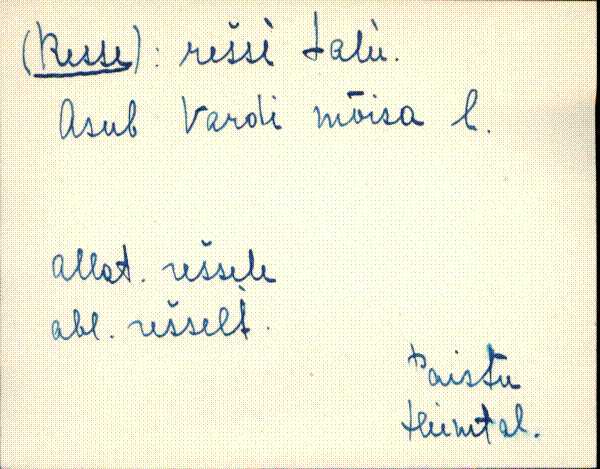 (Resse): rešsi talu.
Asub Vardi mõisa l.
allat. rešsele
abl. rešselt.
Paistu
Heimtal.